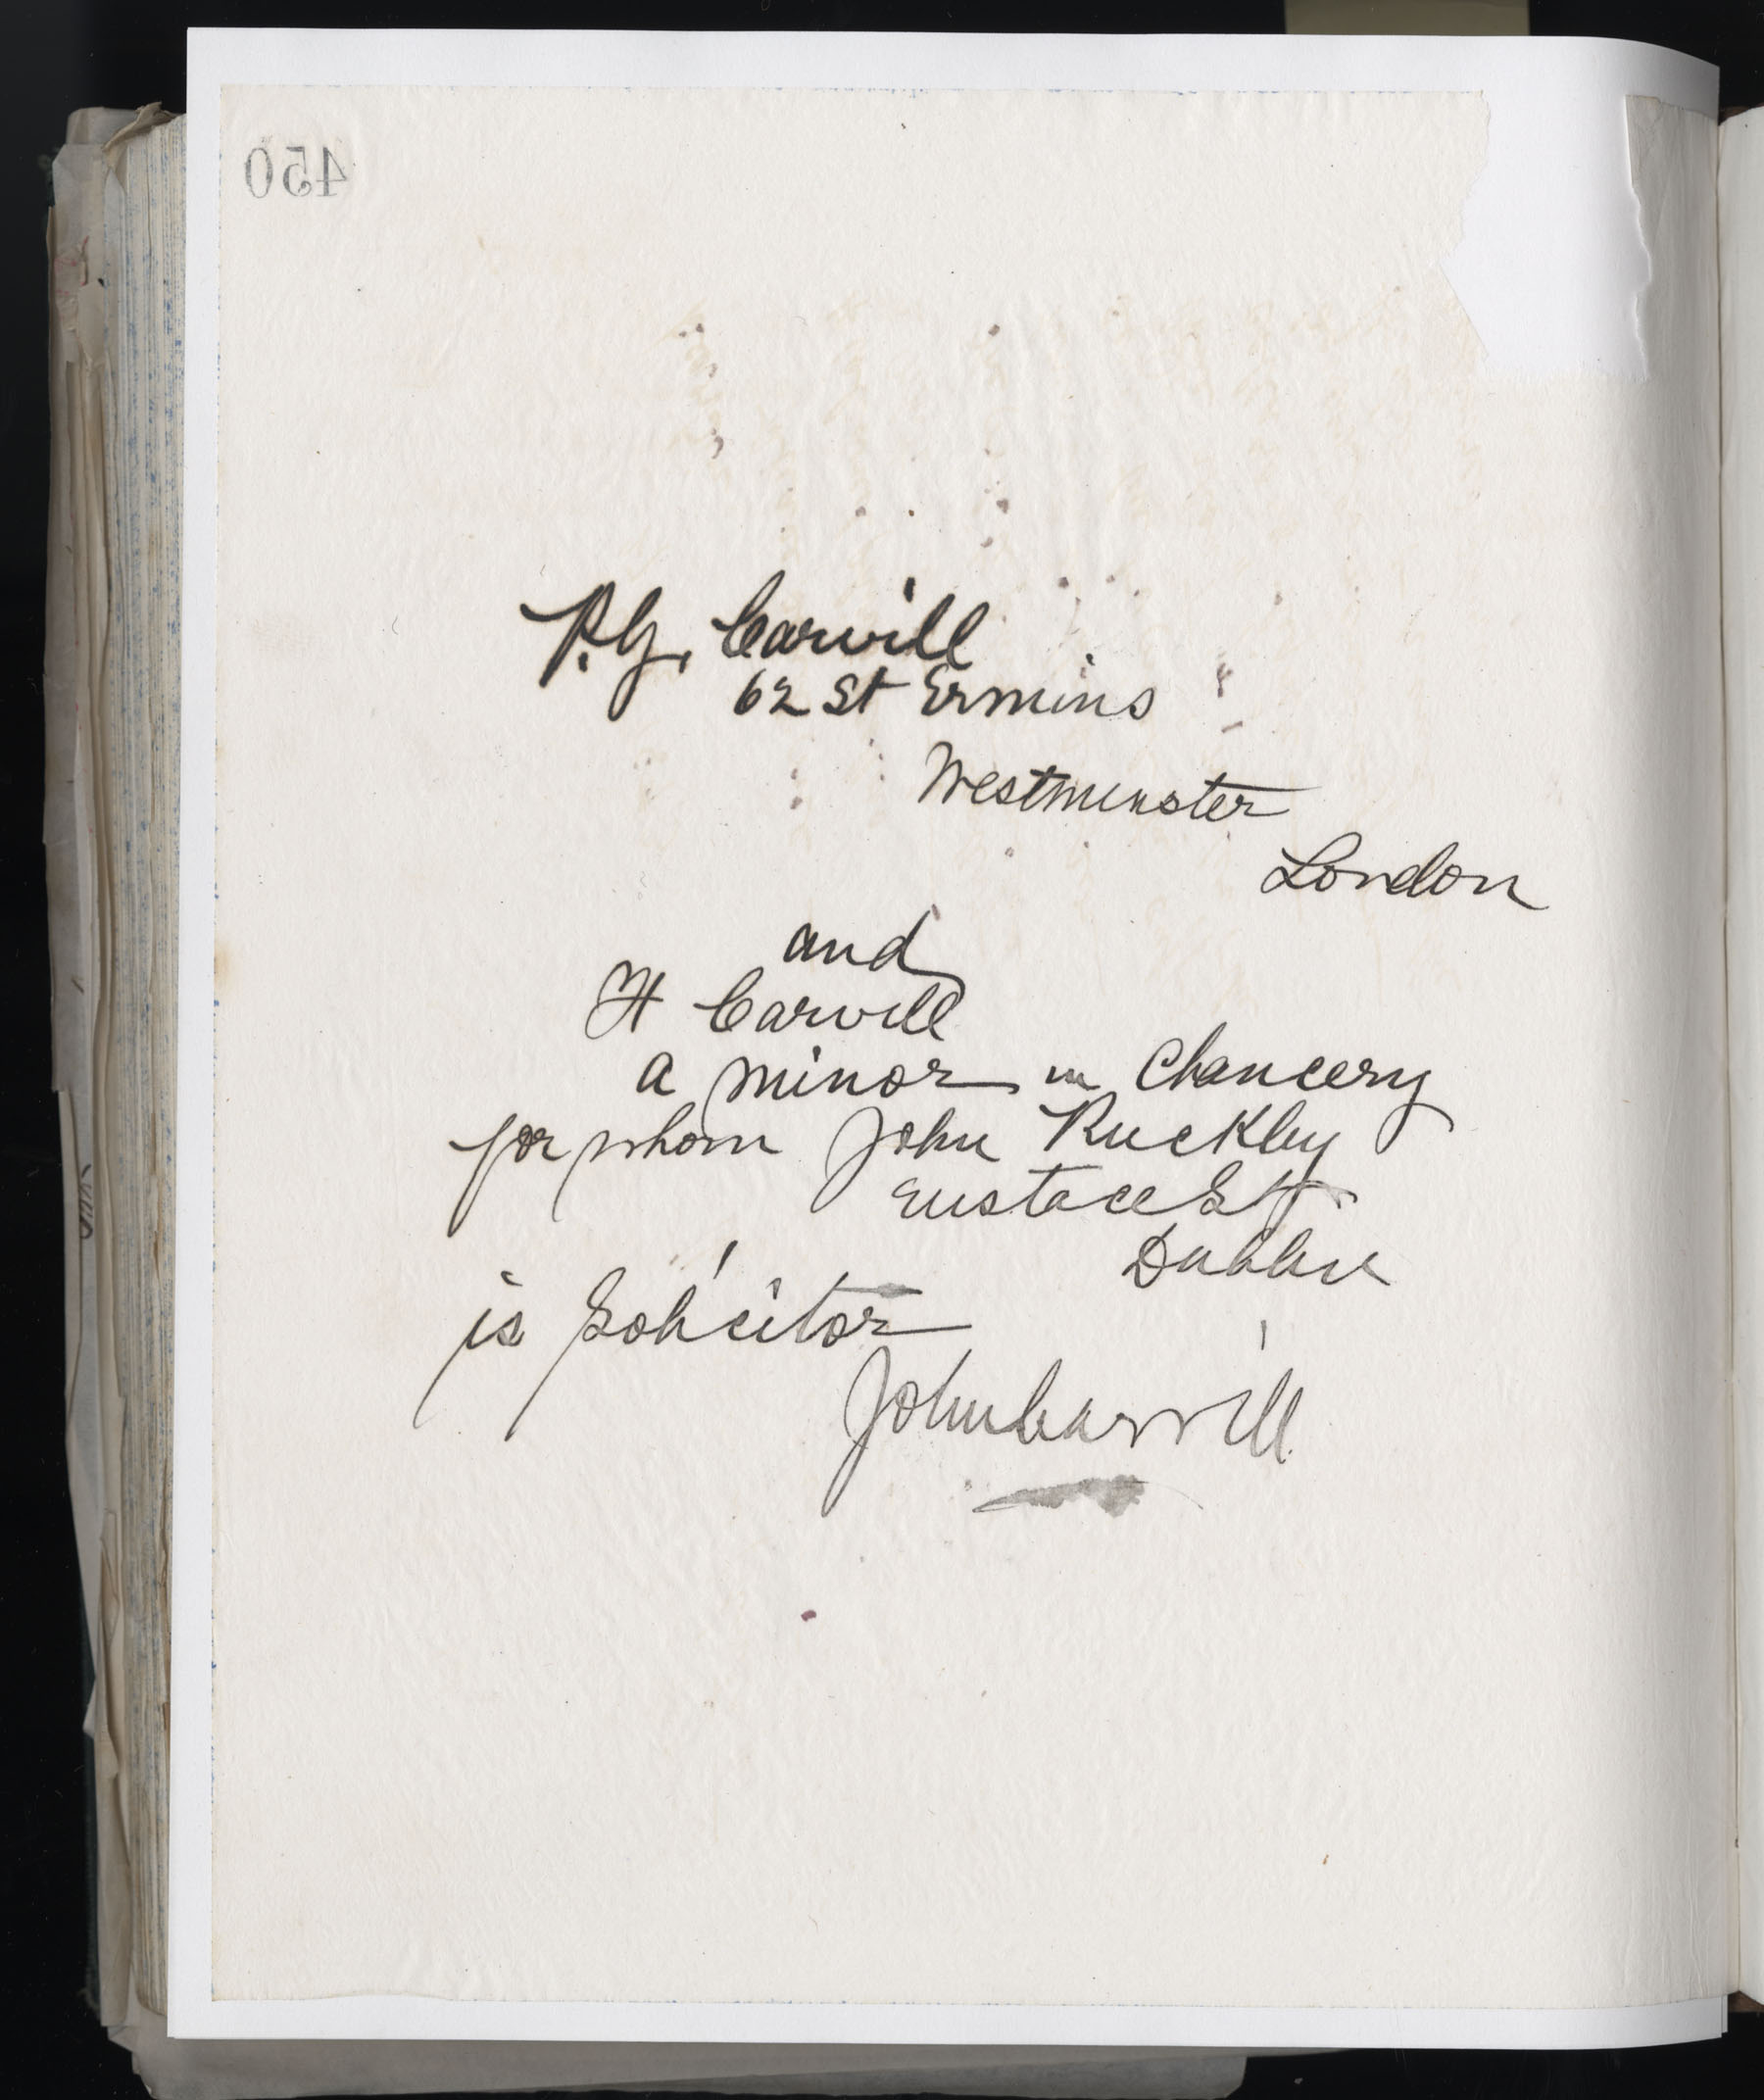 450
P.G. Carvill
62 St Ermins
Westminster
London
and
H Carvill
a minor in Chancery
for whom John Ruckley
Eustace St
Dublin
is Solicitor
John Carvill